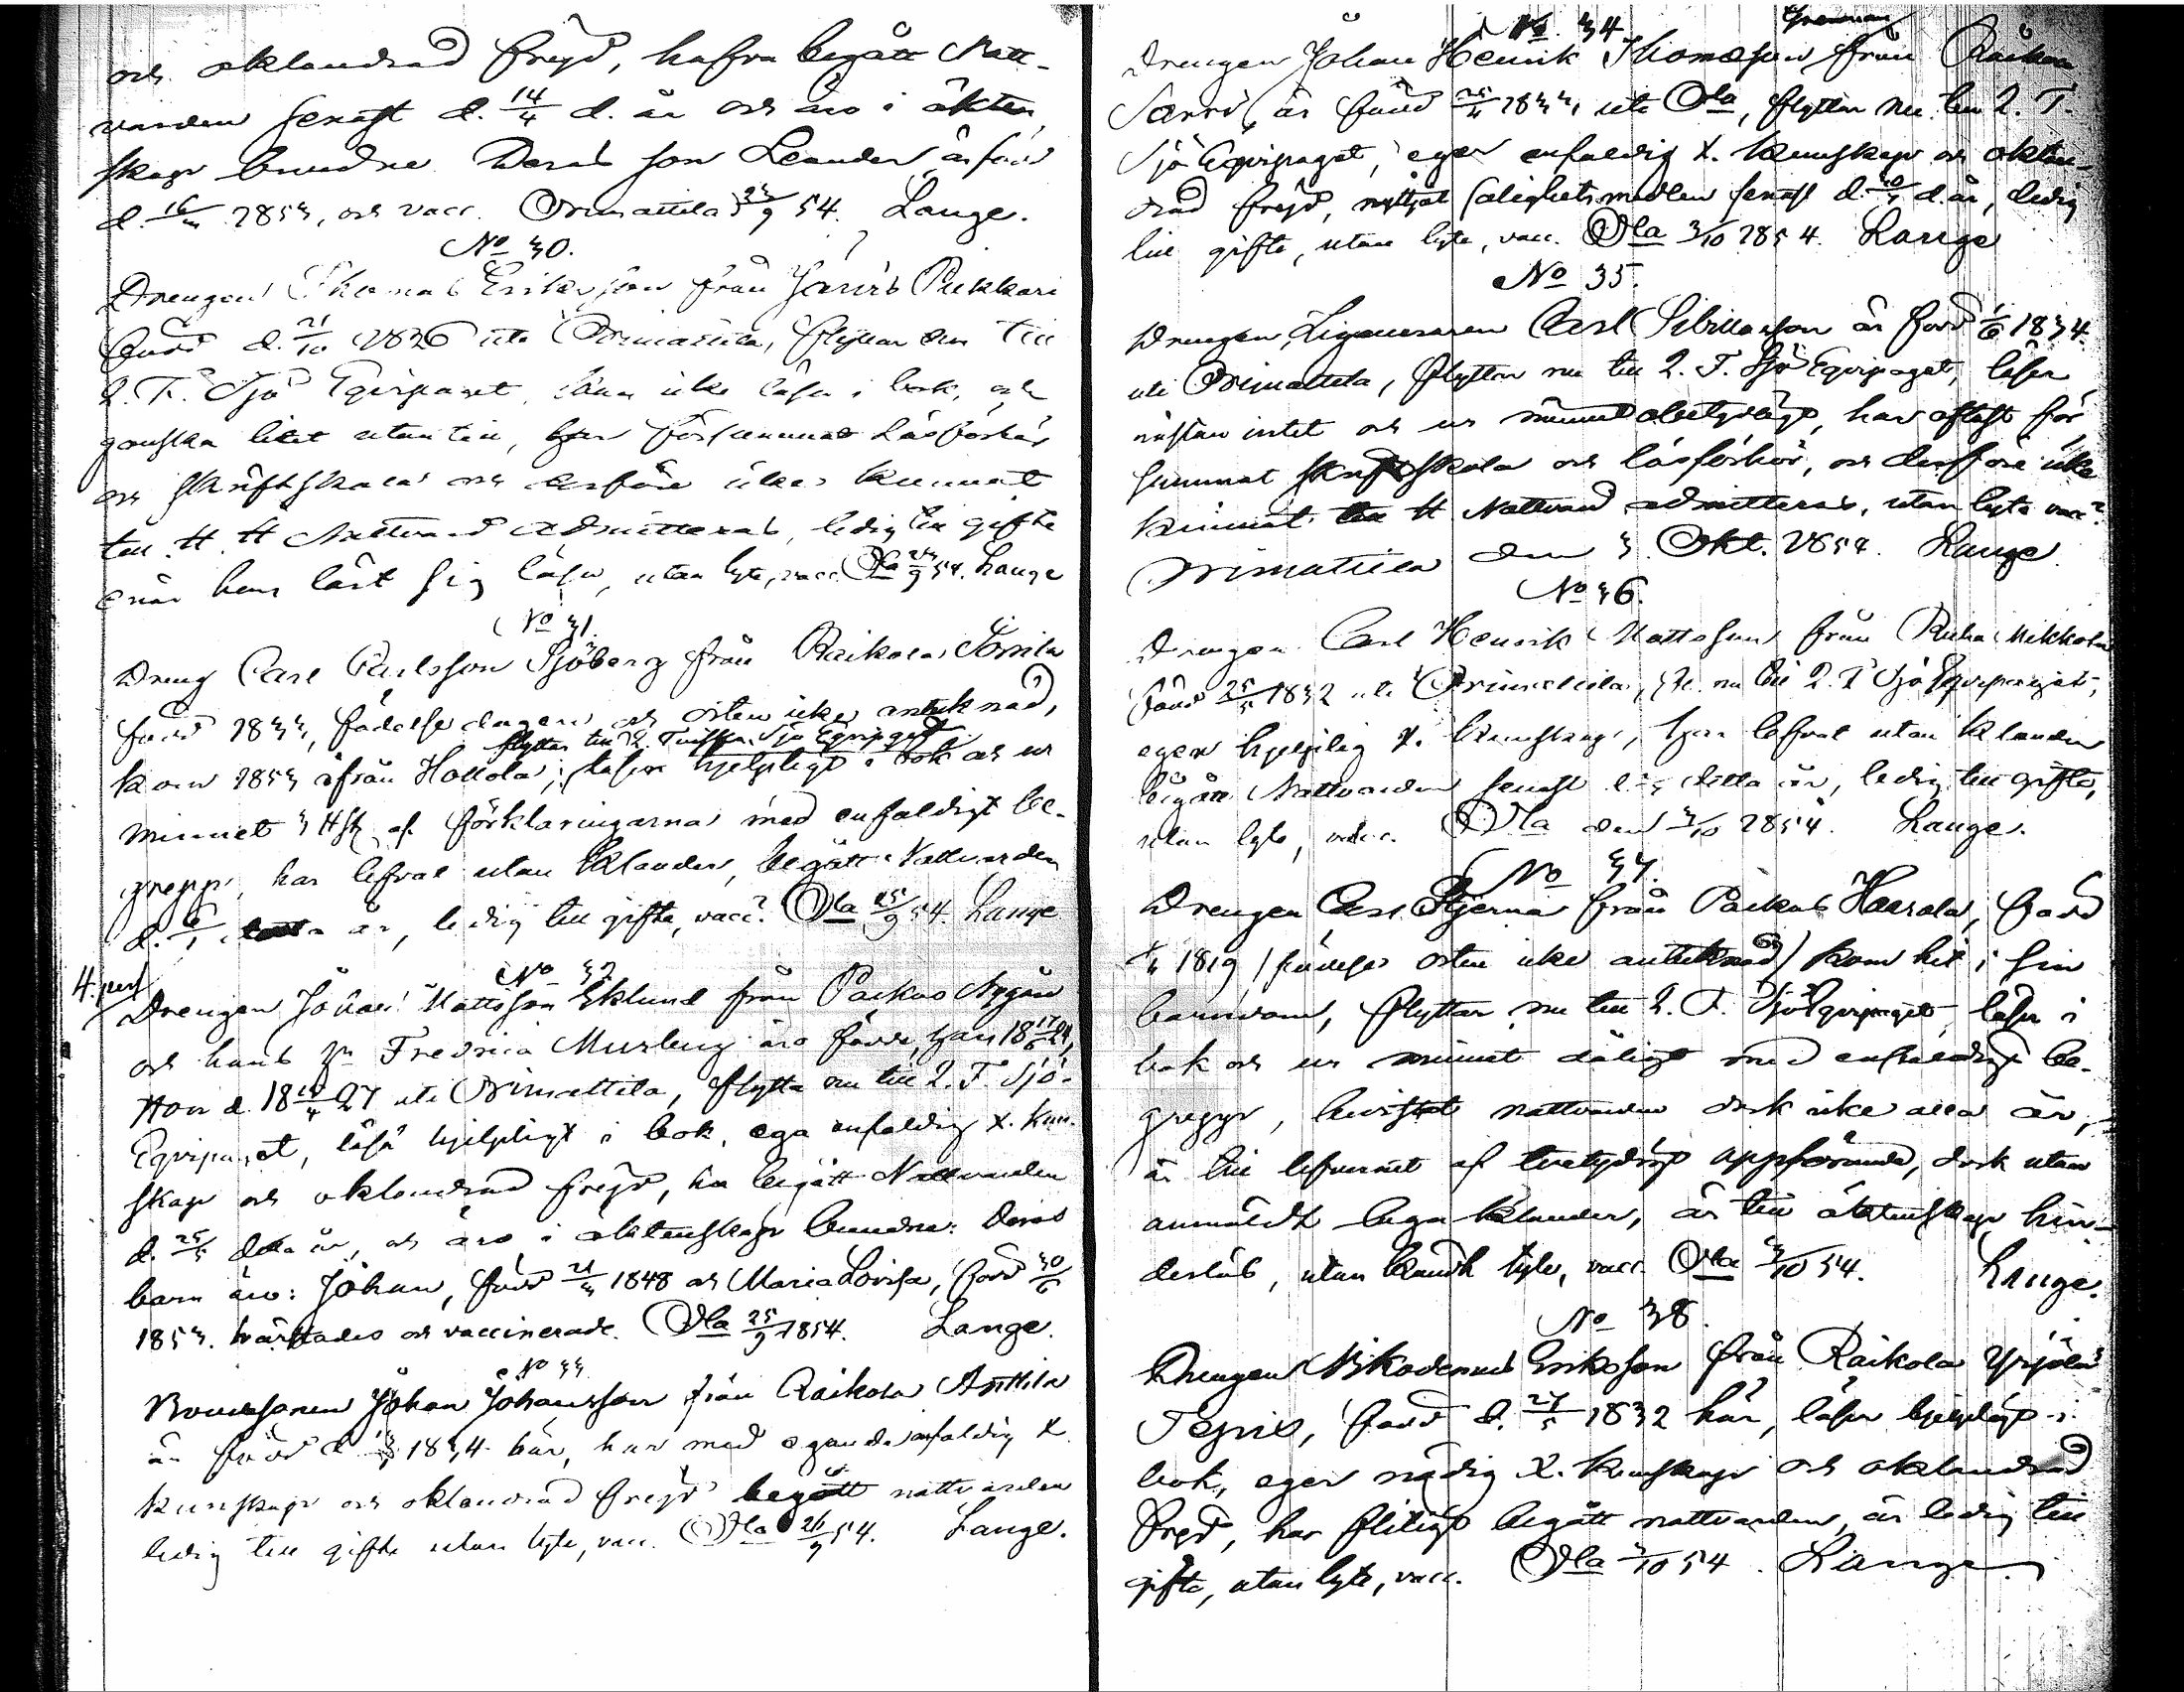 och oklandrad frejd, hafva begått Natt-
varden senast d. 14/4 d. år och äro i äkten-
skap bundne. Deras son Leander är född
d. 16/3 1853, och vacc. Orimattila 23/9 54. Lange.
No 30.
Drengen Thomas Eriksson från Pukkari
född d. 21/10 1826 uti Orimattila, flyttar nu till
2. F. Sjö Eqvipaget, kan icke läsa i bok, och
ganska litet utantill, har försummat Läsförhör
och skriftskola och derföre icke kunnat
till H. H. Nattvard admitteras, ledig till gifte
enär han lärt sig läsa, utan lyte, vacc. Ola 23/9 54. Lange
No 31.
Dreng Carl Carlsson Sjöberg från Raikola
född 1833, födelse dagen och orten icke antecknad,
flyttar till 2. Finska Sjö Eqvipaget
kom 1853 ifrån Hollola, läser hjelpligt i bok och ur
minnet 3 Hst af förklaringarna med enfaldigt be-
grepp, har lefvat utan klander, begått Nattvarden
d. 6/1 detta år, ledig till gifte, vacc? Ola 25/9 54 Lange
No 32
4. pers
Drengen Johan Mattsson Eklund från Paikas Nygård
och hans h:u Fredrica Murberg äro födde, han 18 17/6 24,
Hon d. 18 18/4 27 uti Orimattila, flytta nu till 2. F. Sjö-
Eqvipaget, läsa hjelpligt i bok, ega enfaldig X. kun-
skap och oklandrad frejd, ha begått Nattvarden
d. 25/5 detta år, och äro i äktenskap bundna. Deras
barn äro: Johan, född 21/3 1848 och Maria Lovisa, född 30/6
1853. och vaccinerade. Ola 25/9 1854. Lange.
No 33
Bondesonen Johan Johansson från Raikola Anttila
är född d. 1834 här, har med egande enfaldig X
kunskap och oklandrad frejd begått nattvarden
ledig till gifte utan lyte, vacc. Ola 26/9 54. Lange.
No 34.
Drengen Johan Henrik Thomasson från Raikola
är född 25/4 1833 uti Ola, flyttar nu till 2. F.
Sjö Eqvipaget, eger enfaldig X. kunskap och oklan-
drad frejd, nyttjat salighetsmedlen senast d. d. år, ledig
till gifte, utan lyte, vacc. Ola 3/10 1854. Lange
No 35.
Drengen, Ligameraren Carl Sibillasson är född 1/6 1834
uti Orimattila, flyttar nu till 2. F. Sjö Eqvipaget, läser
nästan intet och ur minnet obetydligt, har oftast för-
summat skriftskola och läsförhör, och derföre icke
kunnat till H Nattvard admitteras, utan lyte vacc?
Orimattila den 3 Okt. 1854. Lange
No 36.
Drengen Carl Henrik Mattsson från Mikkola
född 25/5 1832 uti Orimattila, fl. nu till 2. F Sjö Eqvipaget,
eger hjelplig X. kunskap, har lefvat utan klander
begått Nattvarden senast detta år, ledig till gifte,
utan lyte, vacc. Ola den 3/10 1854. Lange.
No 37.
Drengen Carl Stjerna från Paikas Haarala, född
1819 /födelse orten icke antecknad/ kom hit i sin
barndom, flyttar nu till 2. F. Sjö Eqvipaget, läser i
bok och ur minnet dåligt med enfaldigt be-
grepp, bevistat nattvarden dock icke alla år,
är till lefvernet af tvetydigt uppförande, dock utan
anmäldt laga klander, är till äktenskap hin-
derslös, utan kändt lyte, vacc. Ola 3/10 54. Lange.
No 38.
Drengen Nikodemus Eriksson från Raikola Yrjölä
född d. 27/5 1832 här, läser hjelpligt i
bok, eger nödig X. kunskap och oklandrad
frejd, har flitigt begått nattvarden, är ledig till
gifte, utan lyte, vacc. Ola 3/10 54. Lange